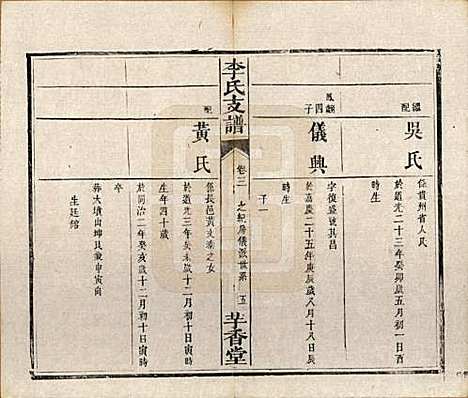 繼配
吳氏
係貴州省人民
於道光二十三年癸卯歲五月初一日酉
時生
鳳麒四子
儀興
字復盛號其昌
於嘉慶二十五年庚辰歲八月十八日辰
時生
子一
李氏支譜
卷三
之紀房儀派世系
五
芋香堂
配
黃氏
係長邑黃文泰之女
於道光三年癸未歲十二月初十日寅時
生年四十歲
於同治二年癸亥歲十二月初十日寅時
卒
葬大墳山坤艮兼申寅向
生廷綰